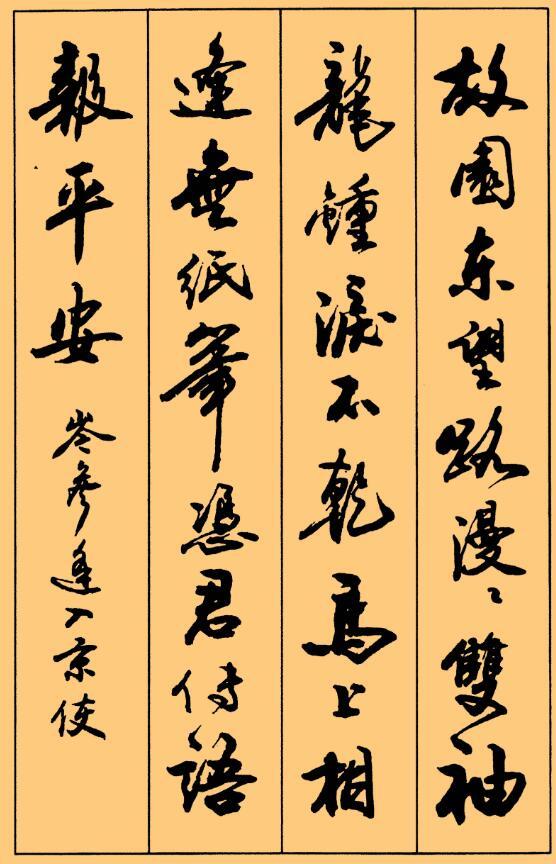 故園东望路漫〻雙袖
龍鍾淚不乾馬上相
逢無紙筆憑君传語
報平安 岑参逢入京使